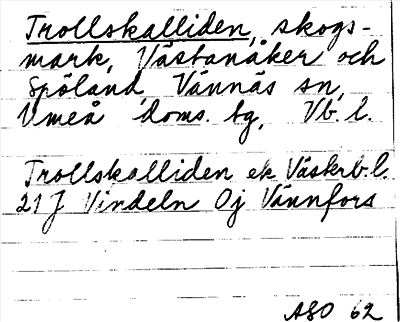 Trollskalliden, skogs-
mark, Västanåker och
Spöland, Vännäs sn,
Umeå doms. tg, Vb. l.
Trollskalliden ek Västerb. l.
21 J Vindeln Oj Vännfors
ASO 62